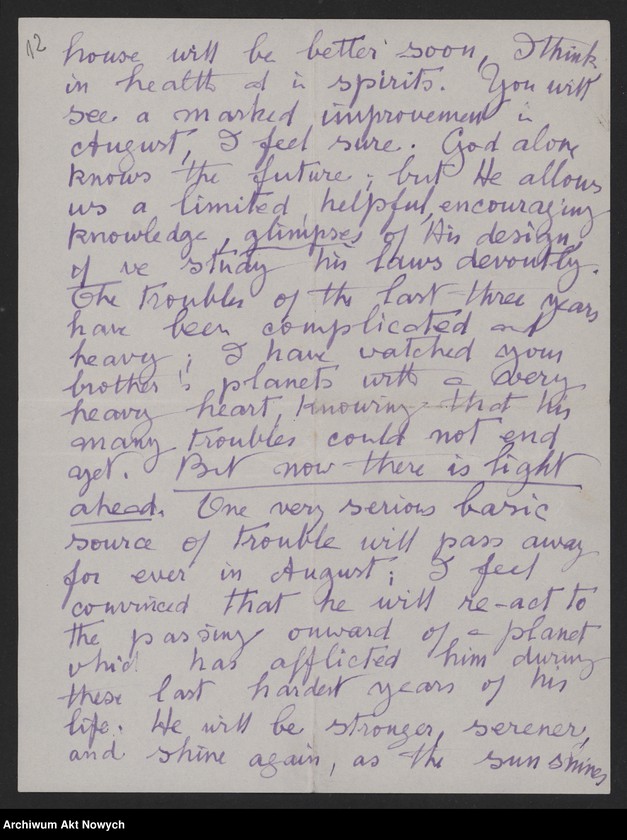 12
house will be better soon, I think,
in health and in spirits. You will
see a marked improvement in
August, I feel sure. God alone
knows the future; but He allows
us a limited, helpful, encouraging
knowledge, glimpses of His design,
if we study his laws devoutly.
The troubles of the last three years
have been complicated and
heavy; I have watched your
brother's planets with a very
heavy heart, knowing that his
many troubles could not end
yet. But now there is light
ahead. One very serious basic
source of trouble will pass away
for ever in August; I feel
convinced that he will re-act to
the passing onward of a planet
which has afflicted him during
these last hardest years of his
life. He will be stronger, serener,
and shine again, as the sun shines
Archiwum Akt Nowych